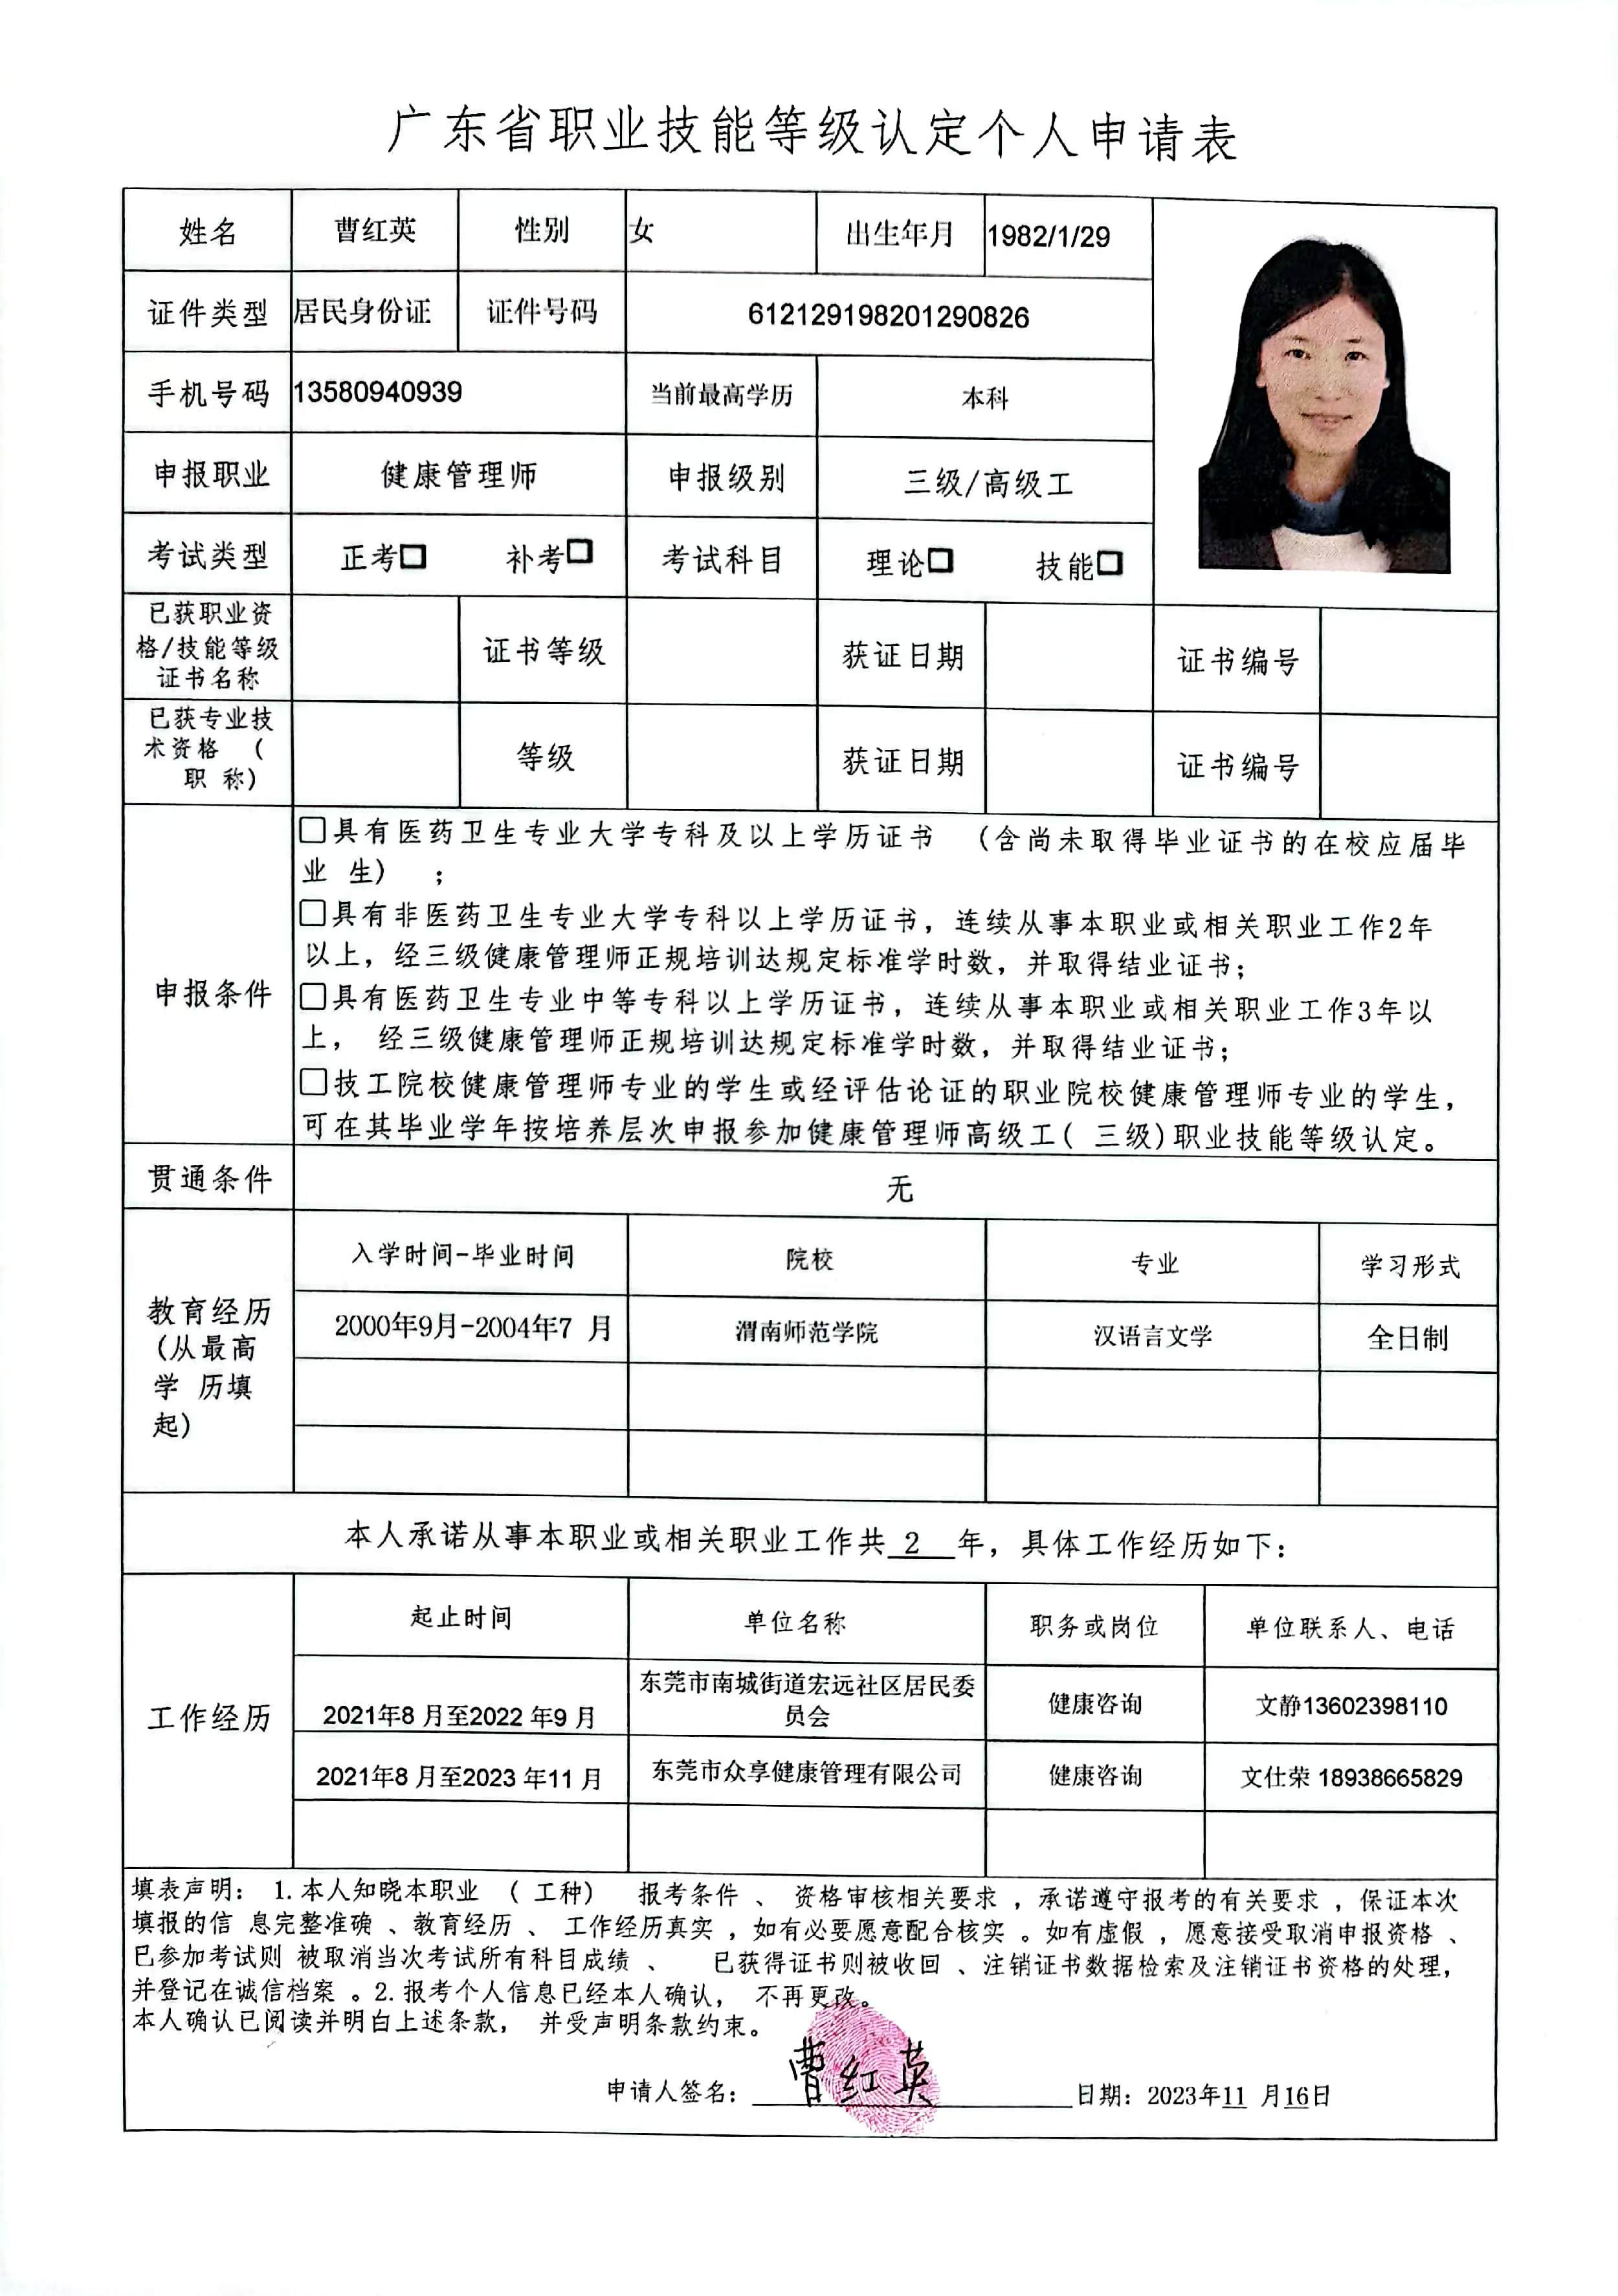 广东省职业技能等级认定个人申请表
姓名 曹红英 性别 女 出生年月 1982/1/29
证件类型 居民身份证 证件号码 612129198201290826
手机号码 13580940939 当前最高学历 本科
申报职业 健康管理师 申报级别 三级/高级工
考试类型 正考□ 补考□ 考试科目 理论□ 技能□
已获职业资
格/技能等级
证书名称 证书等级 获证日期 证书编号
已获专业技
术资格 (
职 称) 等级 获证日期 证书编号
申报条件
□具有医药卫生专业大学专科及以上学历证书 (含尚未取得毕业证书的在校应届毕
业 生) ;
□具有非医药卫生专业大学专科以上学历证书, 连续从事本职业或相关职业工作2年
以上, 经三级健康管理师正规培训达规定标准学时数, 并取得结业证书;
□具有医药卫生专业中等专科以上学历证书, 连续从事本职业或相关职业工作3年以
上, 经三级健康管理师正规培训达规定标准学时数, 并取得结业证书;
□技工院校健康管理师专业的学生或经评估论证的职业院校健康管理师专业的学生,
可在其毕业学年按培养层次申报参加健康管理师高级工( 三级)职业技能等级认定。
贯通条件 无
教育经历
(从最高
学 历填
起)
入学时间-毕业时间 院校 专业 学习形式
2000年9月-2004年7 月 渭南师范学院 汉语言文学 全日制
本人承诺从事本职业或相关职业工作共 2 年, 具体工作经历如下:
工作经历
起止时间 单位名称 职务或岗位 单位联系人、电话
2021年8 月至2022 年9 月 东莞市南城街道宏远社区居民委
员会 健康咨询 文静13602398110
2021年8 月至2023 年11 月 东莞市众享健康管理有限公司 健康咨询 文仕荣 18938665829
填表声明: 1.本人知晓本职业 ( 工种) 报考条件 、 资格审核相关要求 , 承诺遵守报考的有关要求 , 保证本次
填报的信 息完整准确 、教育经历 、 工作经历真实 , 如有必要愿意配合核实 。如有虚假 , 愿意接受取消申报资格 、
已参加考试则 被取消当次考试所有科目成绩 、 已获得证书则被收回 、注销证书数据检索及注销证书资格的处理,
并登记在诚信档案 。2.报考个人信息已经本人确认, 不再更改。
本人确认已阅读并明白上述条款, 并受声明条款约束。
申请人签名: 曹红英 日期: 2023年11 月16日